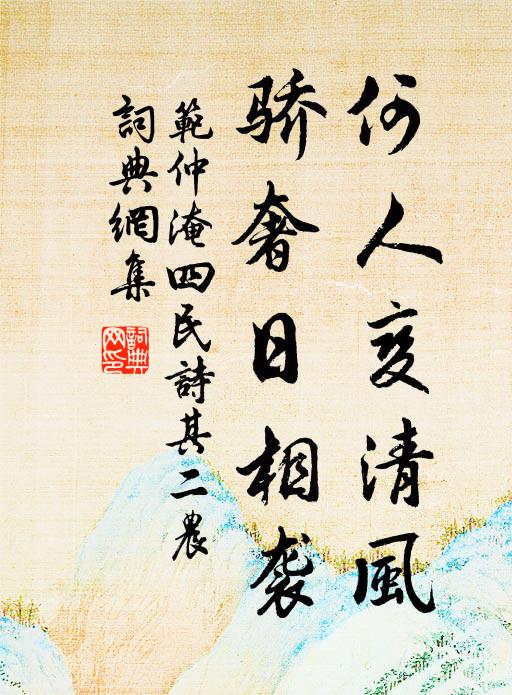 何人变清風
骄奢日相袭
範仲淹四民詩其二農
詞典網集
詞典网印